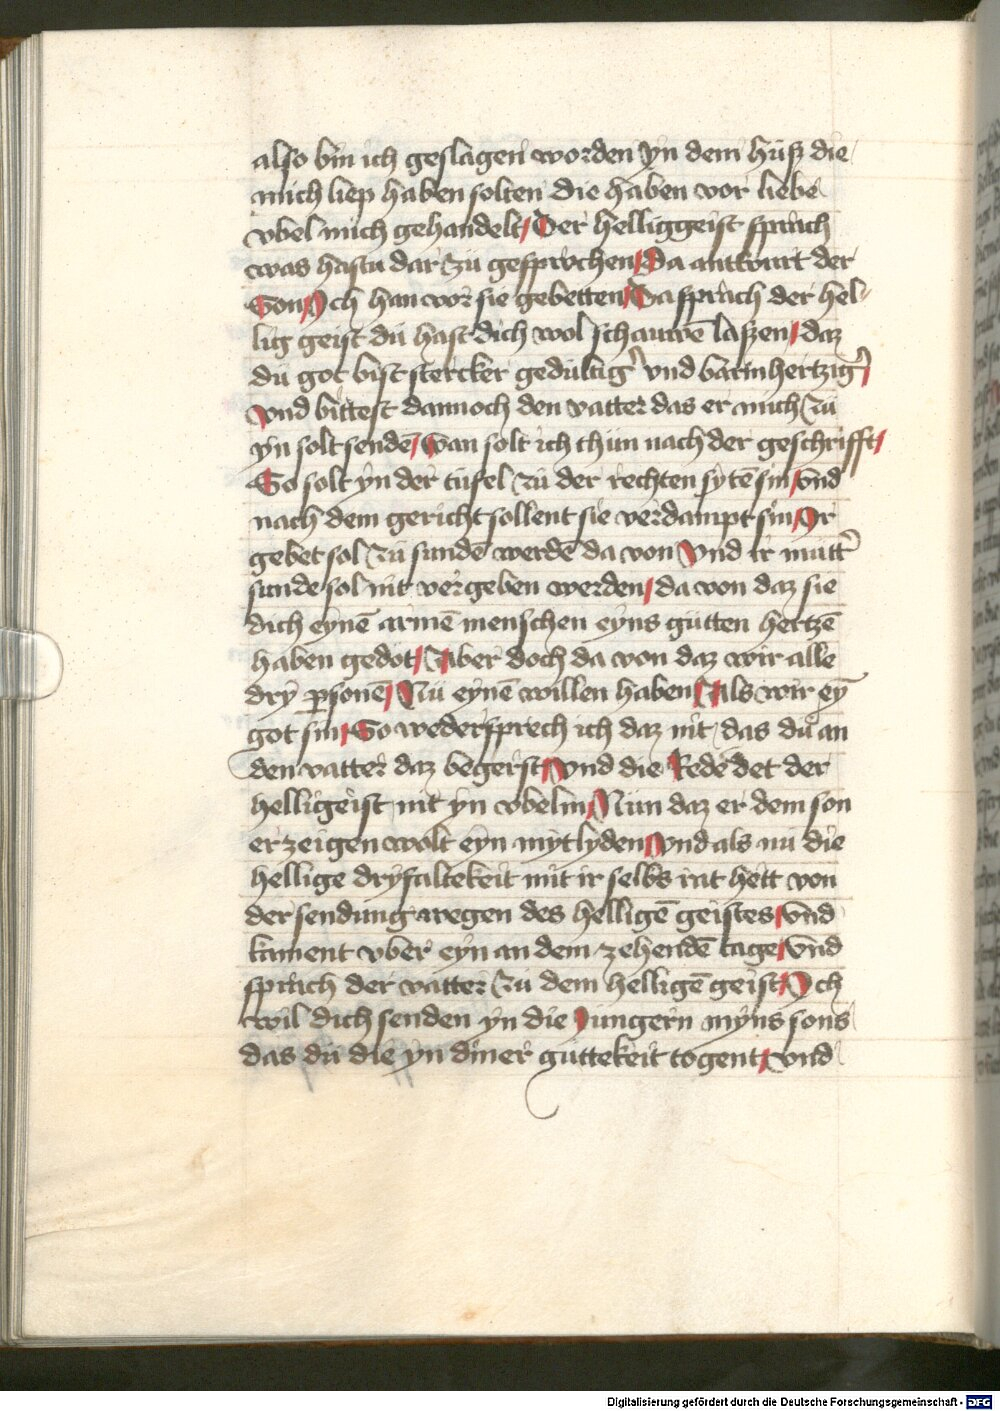 also bin ich geslagen worden yn dem huß die
mich liep haben solten die haben vor liebe
vbel mich gehandelt / Der helliggeist sprach
was hastu dar zü gesprochen / Da antwurt der
Son / Ich han vor sie gebetten / Da sprach der hel-
lig geist dü hast dich wol schauwē laßen / daz
dü got bist stercker gedultig' vnd barmhertzig' /
vnd bittest dannoch den vatter das er mich zü
yn solt sendē / Wan solt ich thün nach der geschrifft /
So solt yn der tüfel zü der rechten sytē sin / vnd
nach dem gericht sollent sie verdampt sin / Ir
gebet sol zü sundē werdē da von Vnd ir mütt'
sunde sol nit vergeben werden / da von daz sie
dich eynē armē menschen eyns gütten hertzē
haben gedöt / Aber doch da von daz wir alle
dry psonē / Nü eynē willen haben / Als wir ey
got sin / So wedersprech ich daz nit das dü an
den vatter daz begerst / Vnd die Rede det der
helligeist nit yn vbelm / Nün daz er dem son
erzeigen wolt eyn mytlyden / Vnd als nü die
hellige dryfaltekeit mit ir selbs rat hett von
der sendung wegen des helligē geistes / Vnd
kament vber eyn an dem zehendē tage / Vnd
sprach der vatter zü dem helligē geist / Ich
wil dich senden yn die Jungern myns sons
das dü die yn diner güttekeit togent / vnd
Digitalisierung gefördert durch die Deutsche Forschungsgemeinschaft - DFG